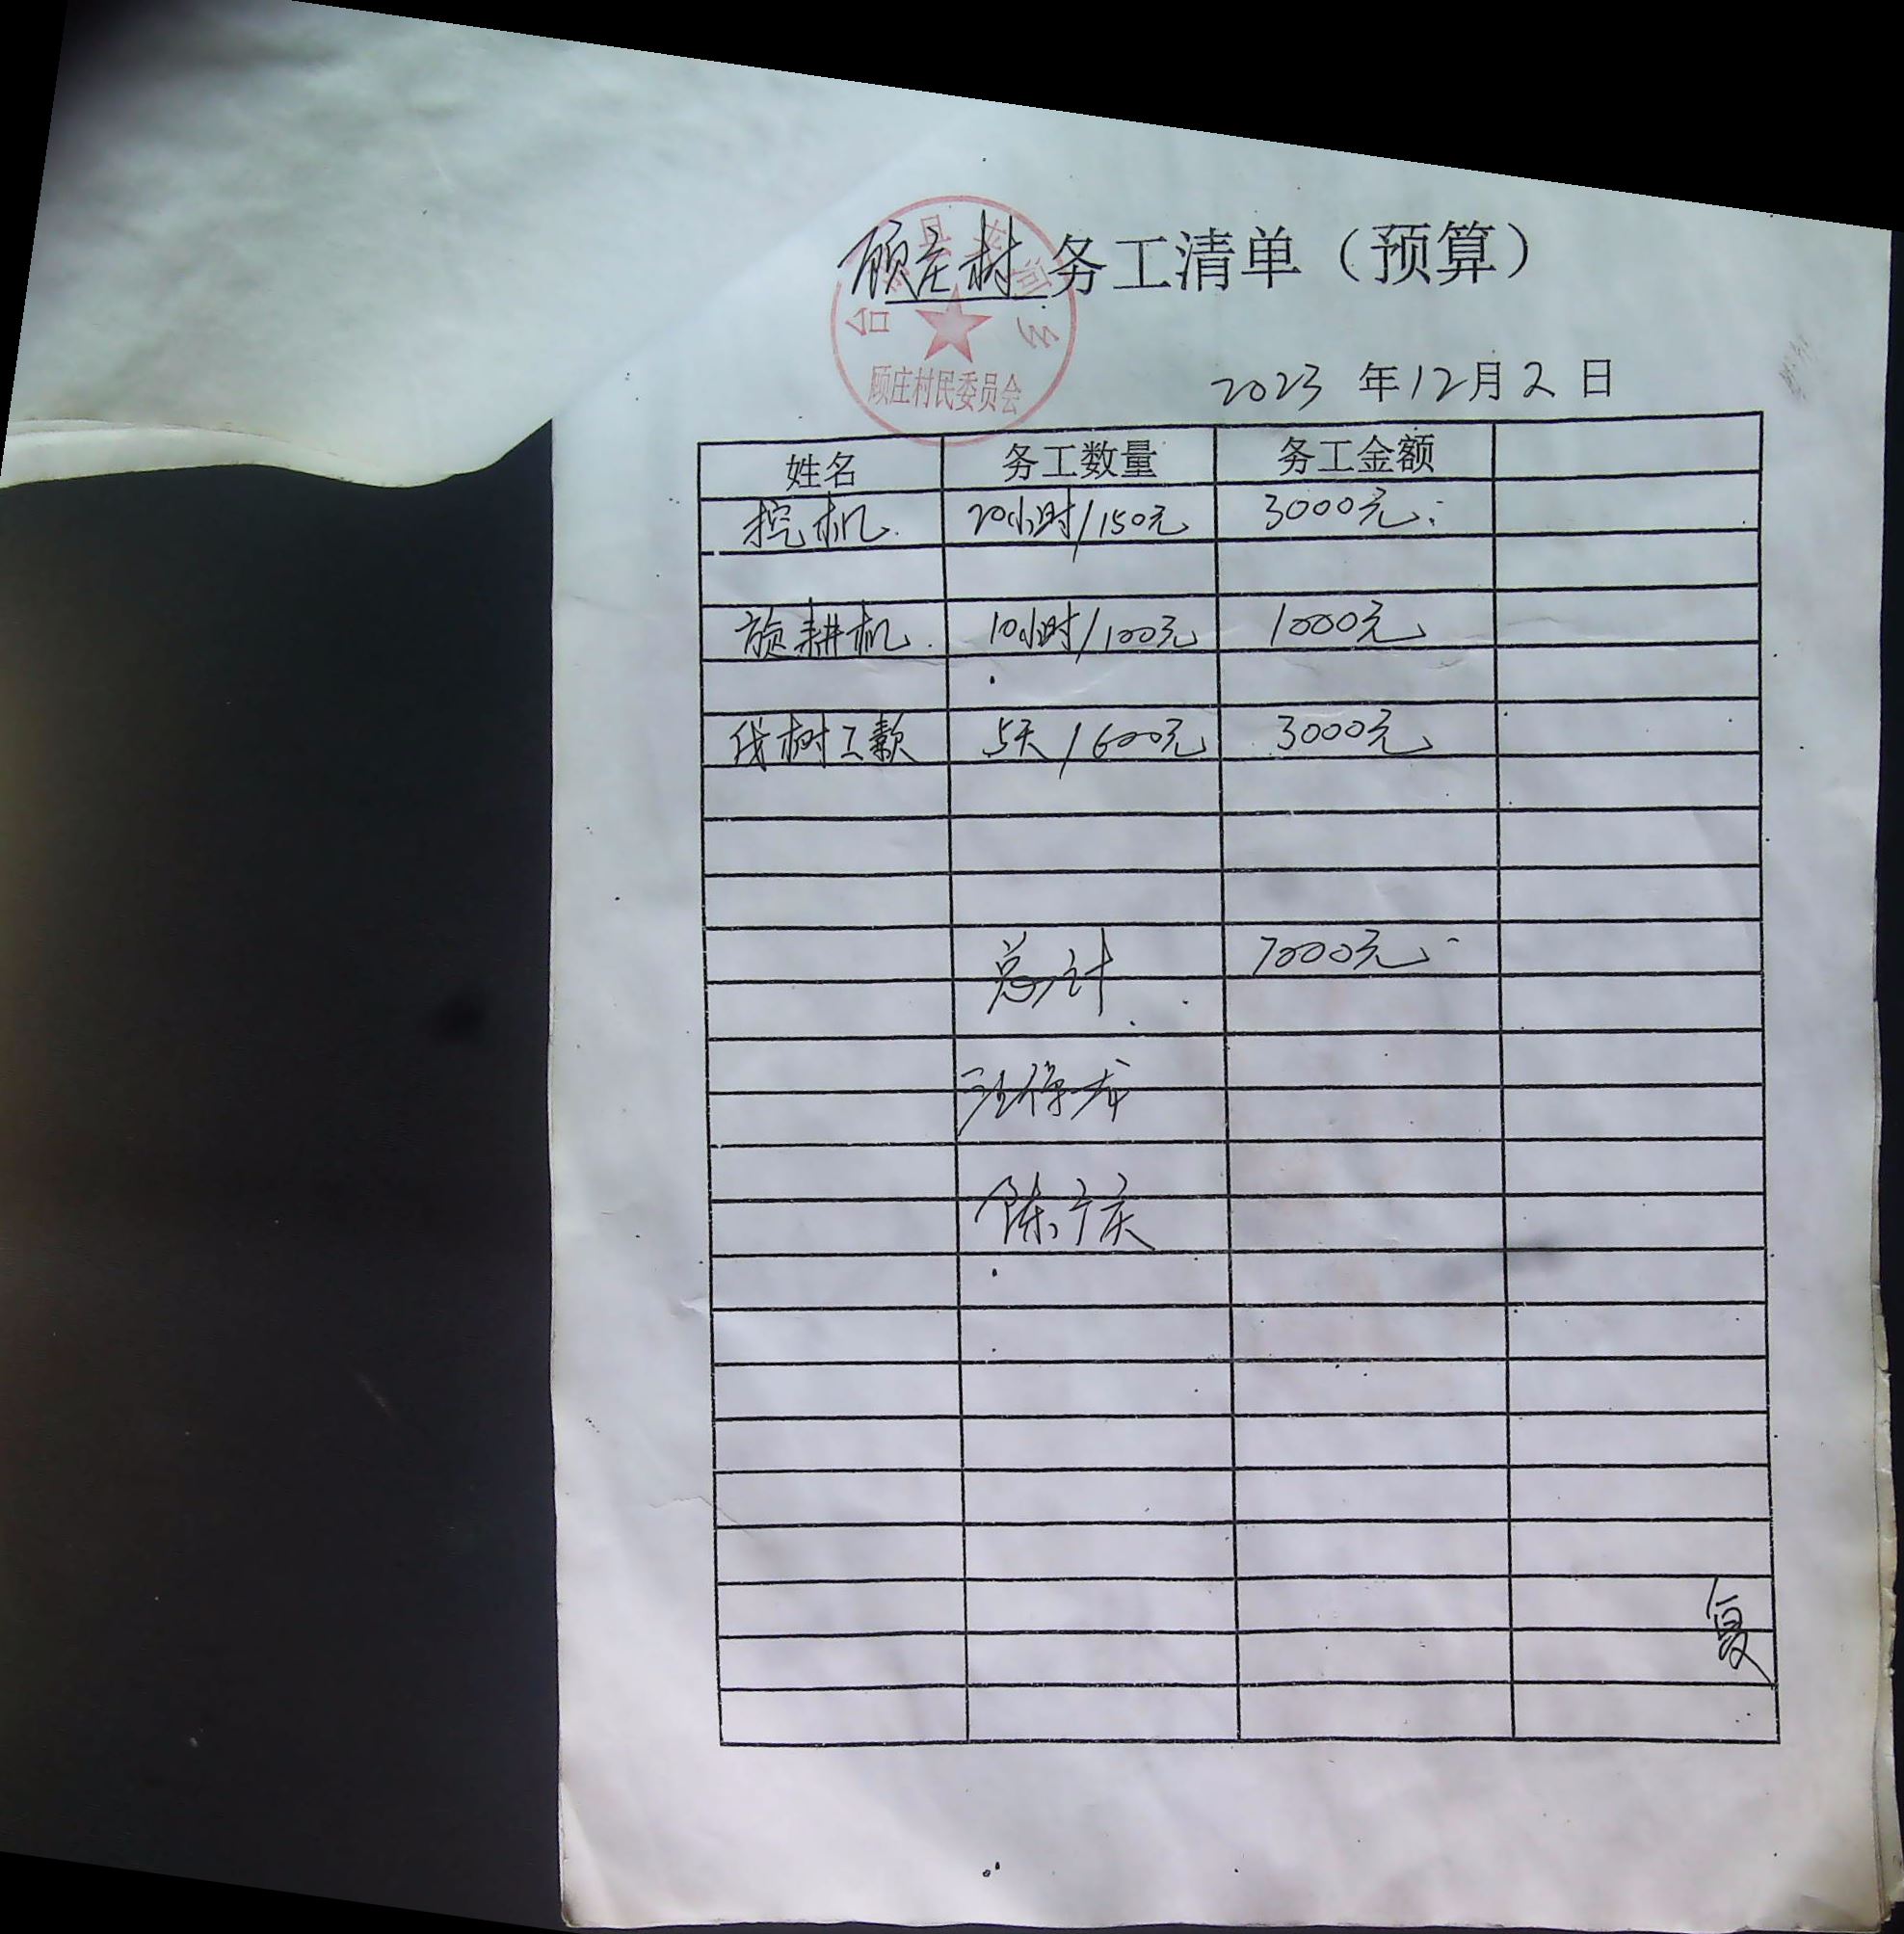 顾庄村务工清单（预算）
顾庄村民委员会
2023年12月2日
姓名 务工数量 务工金额
挖机 20小时/150元 3000元
旋耕机 10小时/100元 1000元
伐树工款 5天/600元 3000元
总计 7000元
陈广庆
复